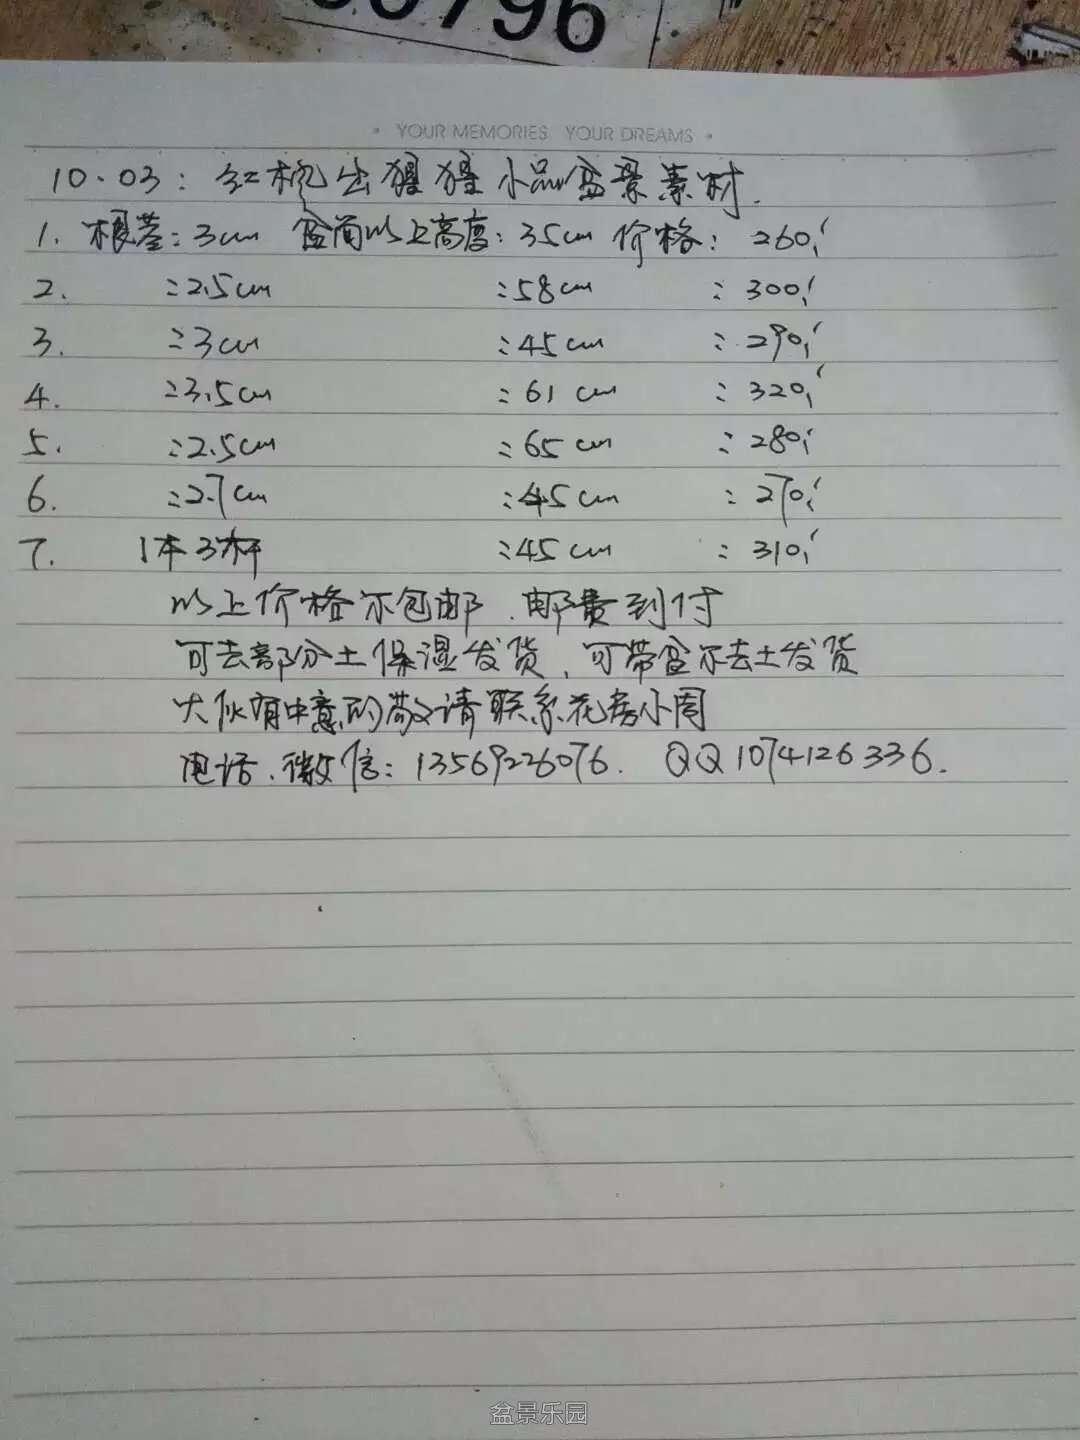 00796
YOUR MEMORIES YOUR DREAMS
10.03: 红枫出猩猩小品盆景素材.
1. 根茎:3cm 盆面以上高度:35cm 价格: 260,
2. :2.5cm :58cm : 300,
3. :3cm :45cm : 290,
4. :3.5cm :61cm : 320,
5. :2.5cm :65cm : 280,
6. :2.7cm :45cm : 270,
7. 1本3杆 :45cm : 310,
以上价格不包邮、邮费到付
可去部分土保湿发货、可带盆不去土发货
大伙有中意的敬请联系花房小周
电话、微信: 13569226076. QQ1074126336.
盆景乐园